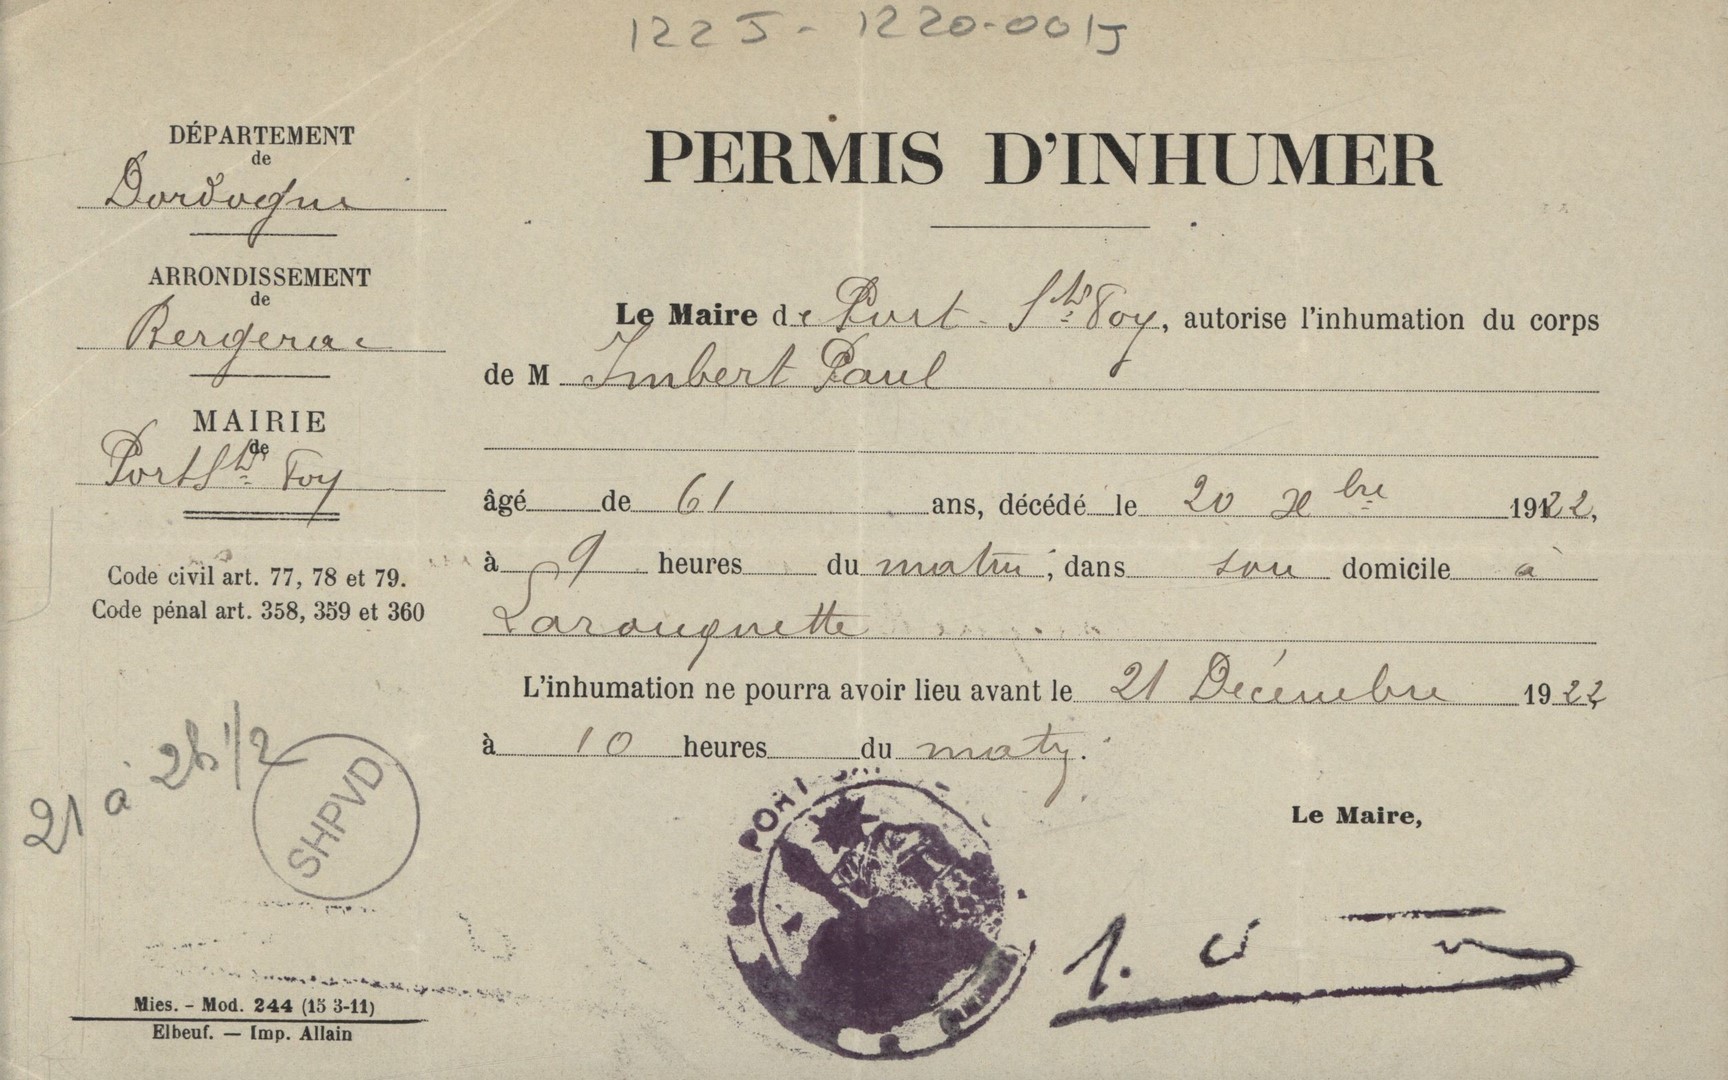 122 J - 1220-001J
DÉPARTEMENT
de
Dordogne
ARRONDISSEMENT
de
Bergerac
MAIRIE
de
Port Ste Foy
Code civil art. 77, 78 et 79.
Code pénal art. 358, 359 et 360
21 à 2h 1/2
SHPVD
Mies. - Mod. 244 (15 3-11)
Elbeuf. — Imp. Allain
PERMIS D'INHUMER
Le Maire de Port-Ste Foy, autorise l'inhumation du corps
de M Imbert Paul
âgé de 61 ans, décédé le 20 Xbre 1922,
à 9 heures du matin, dans son domicile à
Larouquette
L'inhumation ne pourra avoir lieu avant le 21 Décembre 1922,
à 10 heures du matin.
Le Maire,
PORT